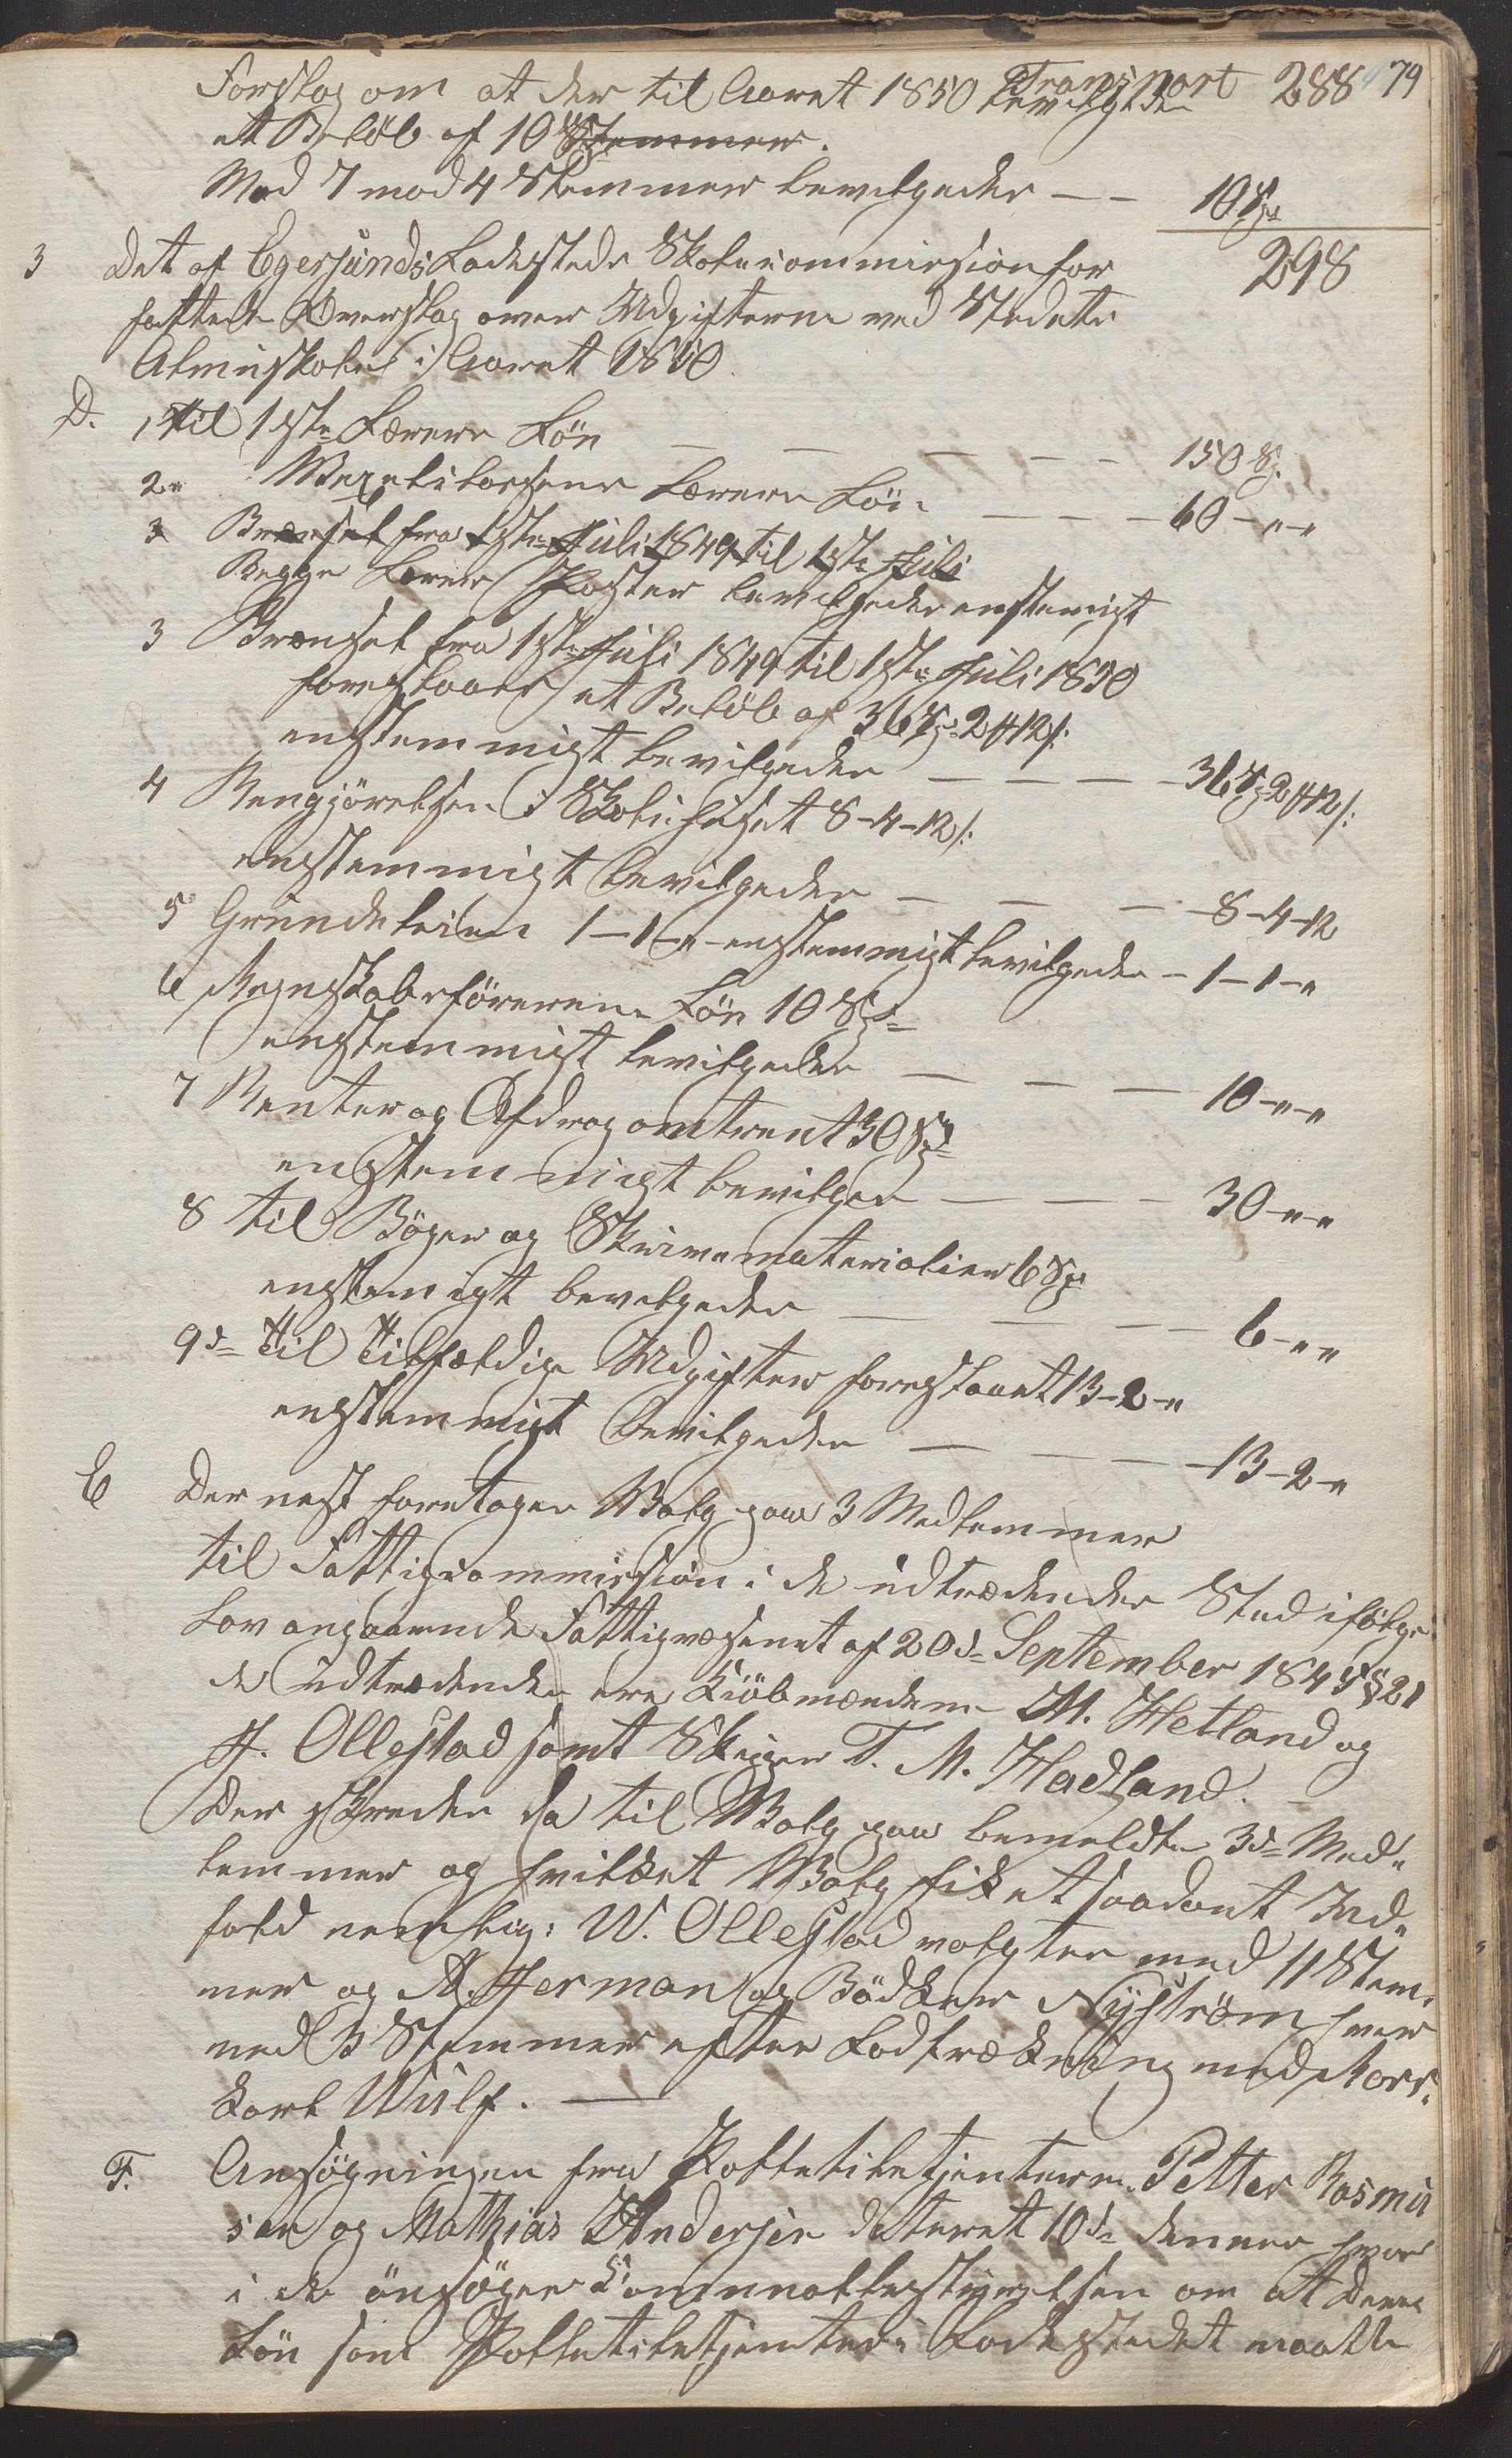 79
Forslag om at der til Aaret 1850 bevilgedes Transport 288
et Beløb af 10 Spd Stemmer.
Med 7 mod 4 Stemmer bevilgedes — — 10 Spd
298
3 Det af Egersunds Ladesteds Skolecommission for
fattede Overslag over Udgifterne ved Stedets
Almueskole i Aaret 1850.
D. 1, til 1ste Lærers Løn — — — — — 150 Sp.
2" Lærers Løn — — — 60-"-"
3 Brænsel fra 1ste Juli 1849 til 1ste Juli
Begge Lærer Poster bevilgedes enstemigt
3 Brænsel fra 1ste Juli 1849 til 1ste Juli 1850
foreslaaes et Beløb af 36 Sp 2 # 12 /:
enstemmigt bevilgedes — — — — 36 Sp 2 # 12 /:
4 Rengjørelsen i Skolehuset 8-4-12 /:
enstemmigt bevilgedes — — — 8-4-12
5 Grundeleien 1-1-" enstemmigt bevilgedes — 1-1-"
6 Regnskabsførerens Løn 10 Sp
enstemmigt bevilgedes — — — 10-"-"
7 Renter og Afdrag omtrent 30 Sp
enstemmigt bevilges — — — 30-"-"
8 til Bøger og Skrivematerialier 6 Sp
enstemigt bevelgedes — — — — 6-"-"
9de til tilfældige Udgifter foreslaaet 13-2-"
enstemmigt bevilgedes — — — 13-2-"
E Der nest foretages Valg paa 3 Medlemmer
til Fattigcommission i de udtrædendes Sted ifølge
Lov angaaende Fattigvæsenet af 20de September 1845 § 21
de udtrædende ere Kiøbmændene M. Hetland og
H. Ollestad samt Skipper T. M. Hadland. —
Der skredes da til Valg paa bemeldte 3de Med"
lemmer og hvilket Valg fik et saadant Ud"
fald nemlig: W. Ollestad valgtes med 11 Stem"
mer og A. Herman og Bødker Nyström hver
med 3 Stemmer efter Lodtrækning med
Karl Wülf. —
F. Ansøgningen fra Politibetjenterne Petter Rasmu
sen og Mathias Andersen dateret 10de dennes hvor
i de ansøger Communebestyrelsen om at deres
Løn som Politibetjenter i Ladestedet maatte